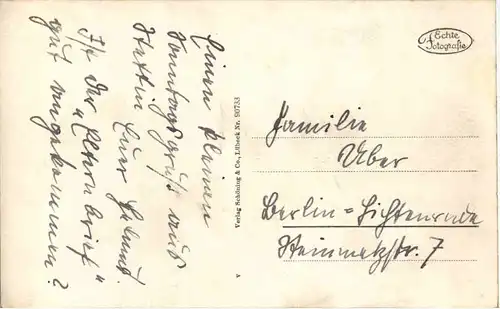 Einen kleinen
Sonntagsgruß aus
Stettin Euer Helmut.
Ist der "Elternbrief"
gut angekommen?
Verlag Schöning & Co., Lübeck Nr. 90733
V
Echte
Fotografie
Familie
Uber
Berlin=Lichtenrade
Steinmetzstr. 7